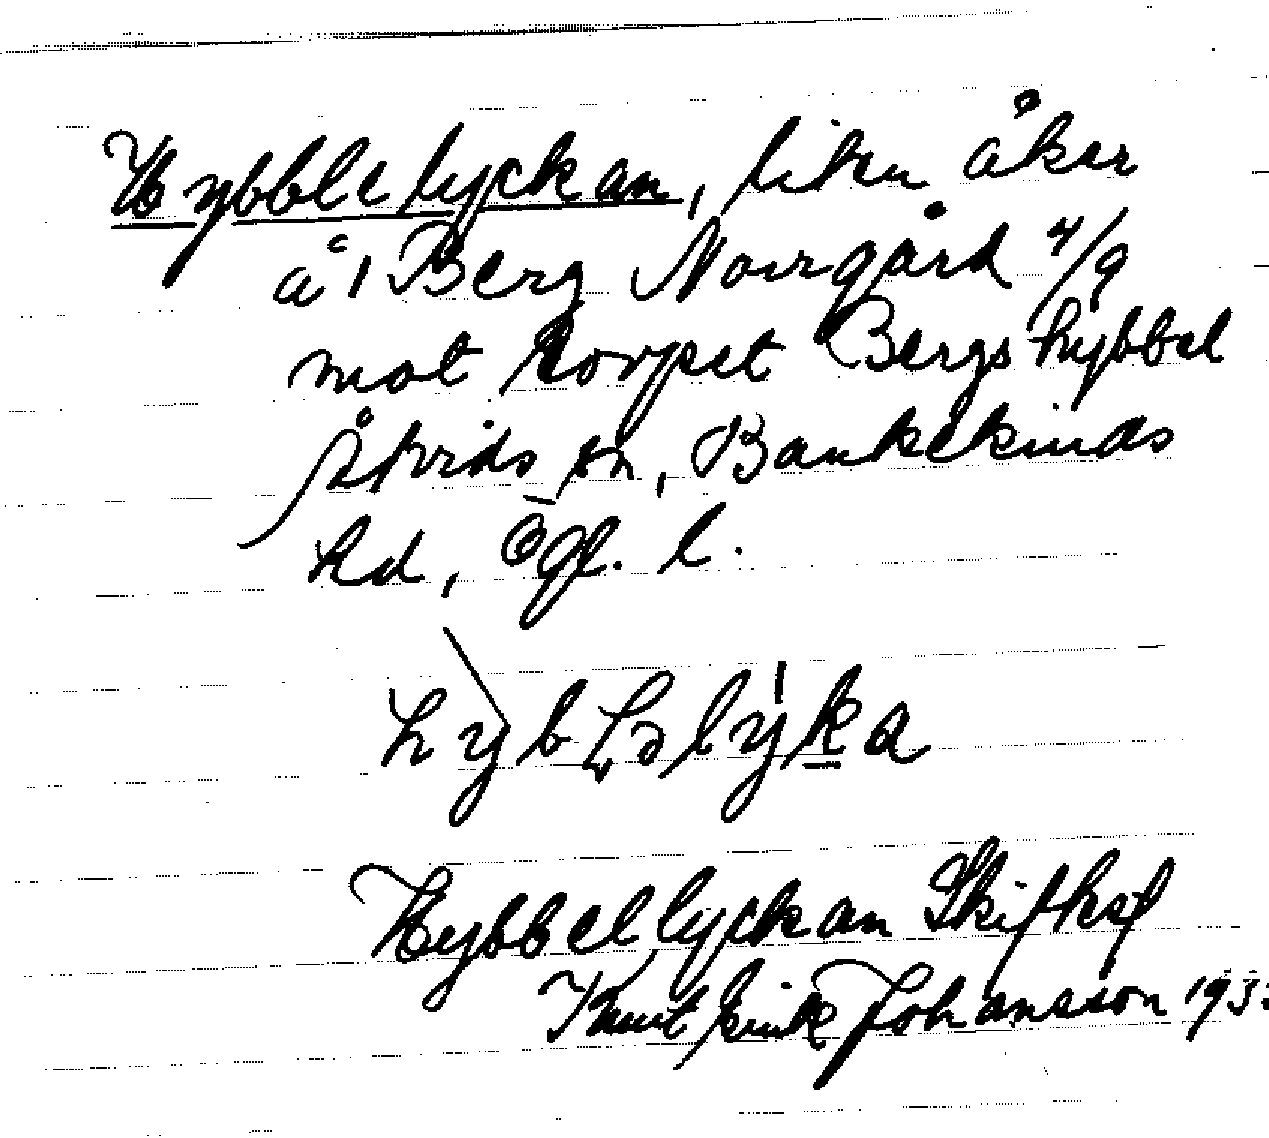 Hybblelyckan, liten åker
å 1 Berg Norrgård 4/9
mot torpet Bergshybbel
Åtvids sn, Bankekinds
hd, Ögl. l.
Hybbellyckan Skifteskf
Knut Johansson 193